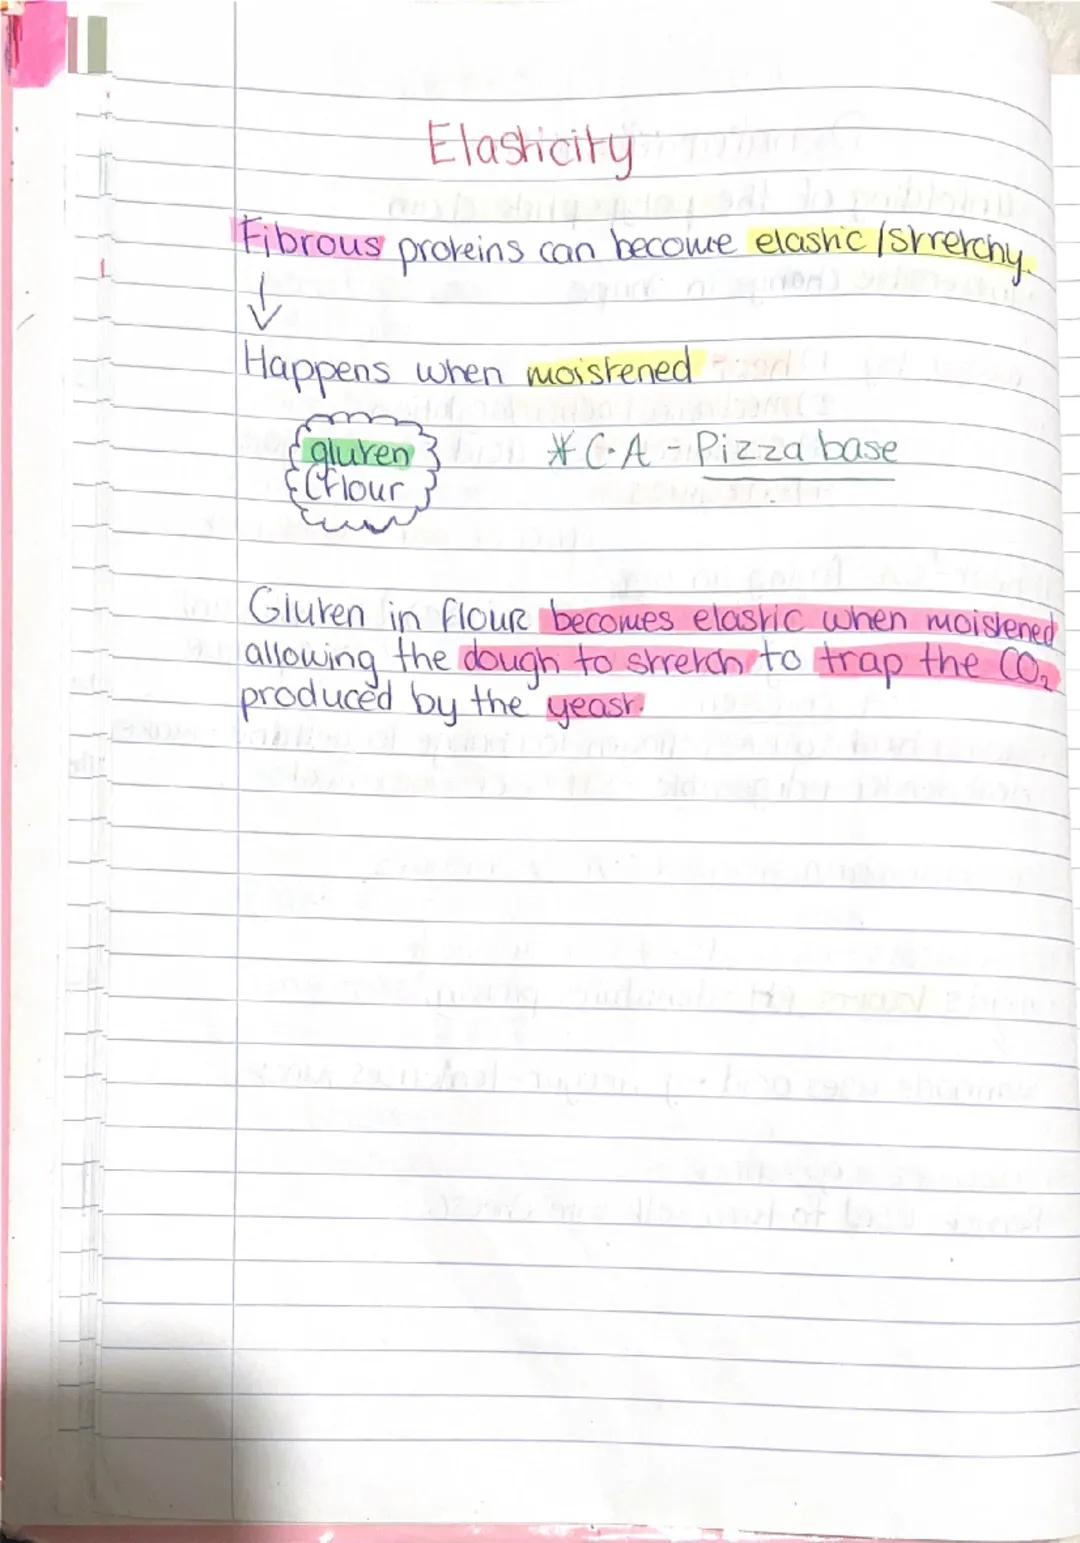 Elasticity
Fibrous proteins can become elastic / stretchy.
↓
Happens when moistened
gluten
(flour
* C.A - Pizza base
Gluten in flour becomes elastic when moistened
allowing the dough to stretch to trap the CO₂
produced by the yeast.